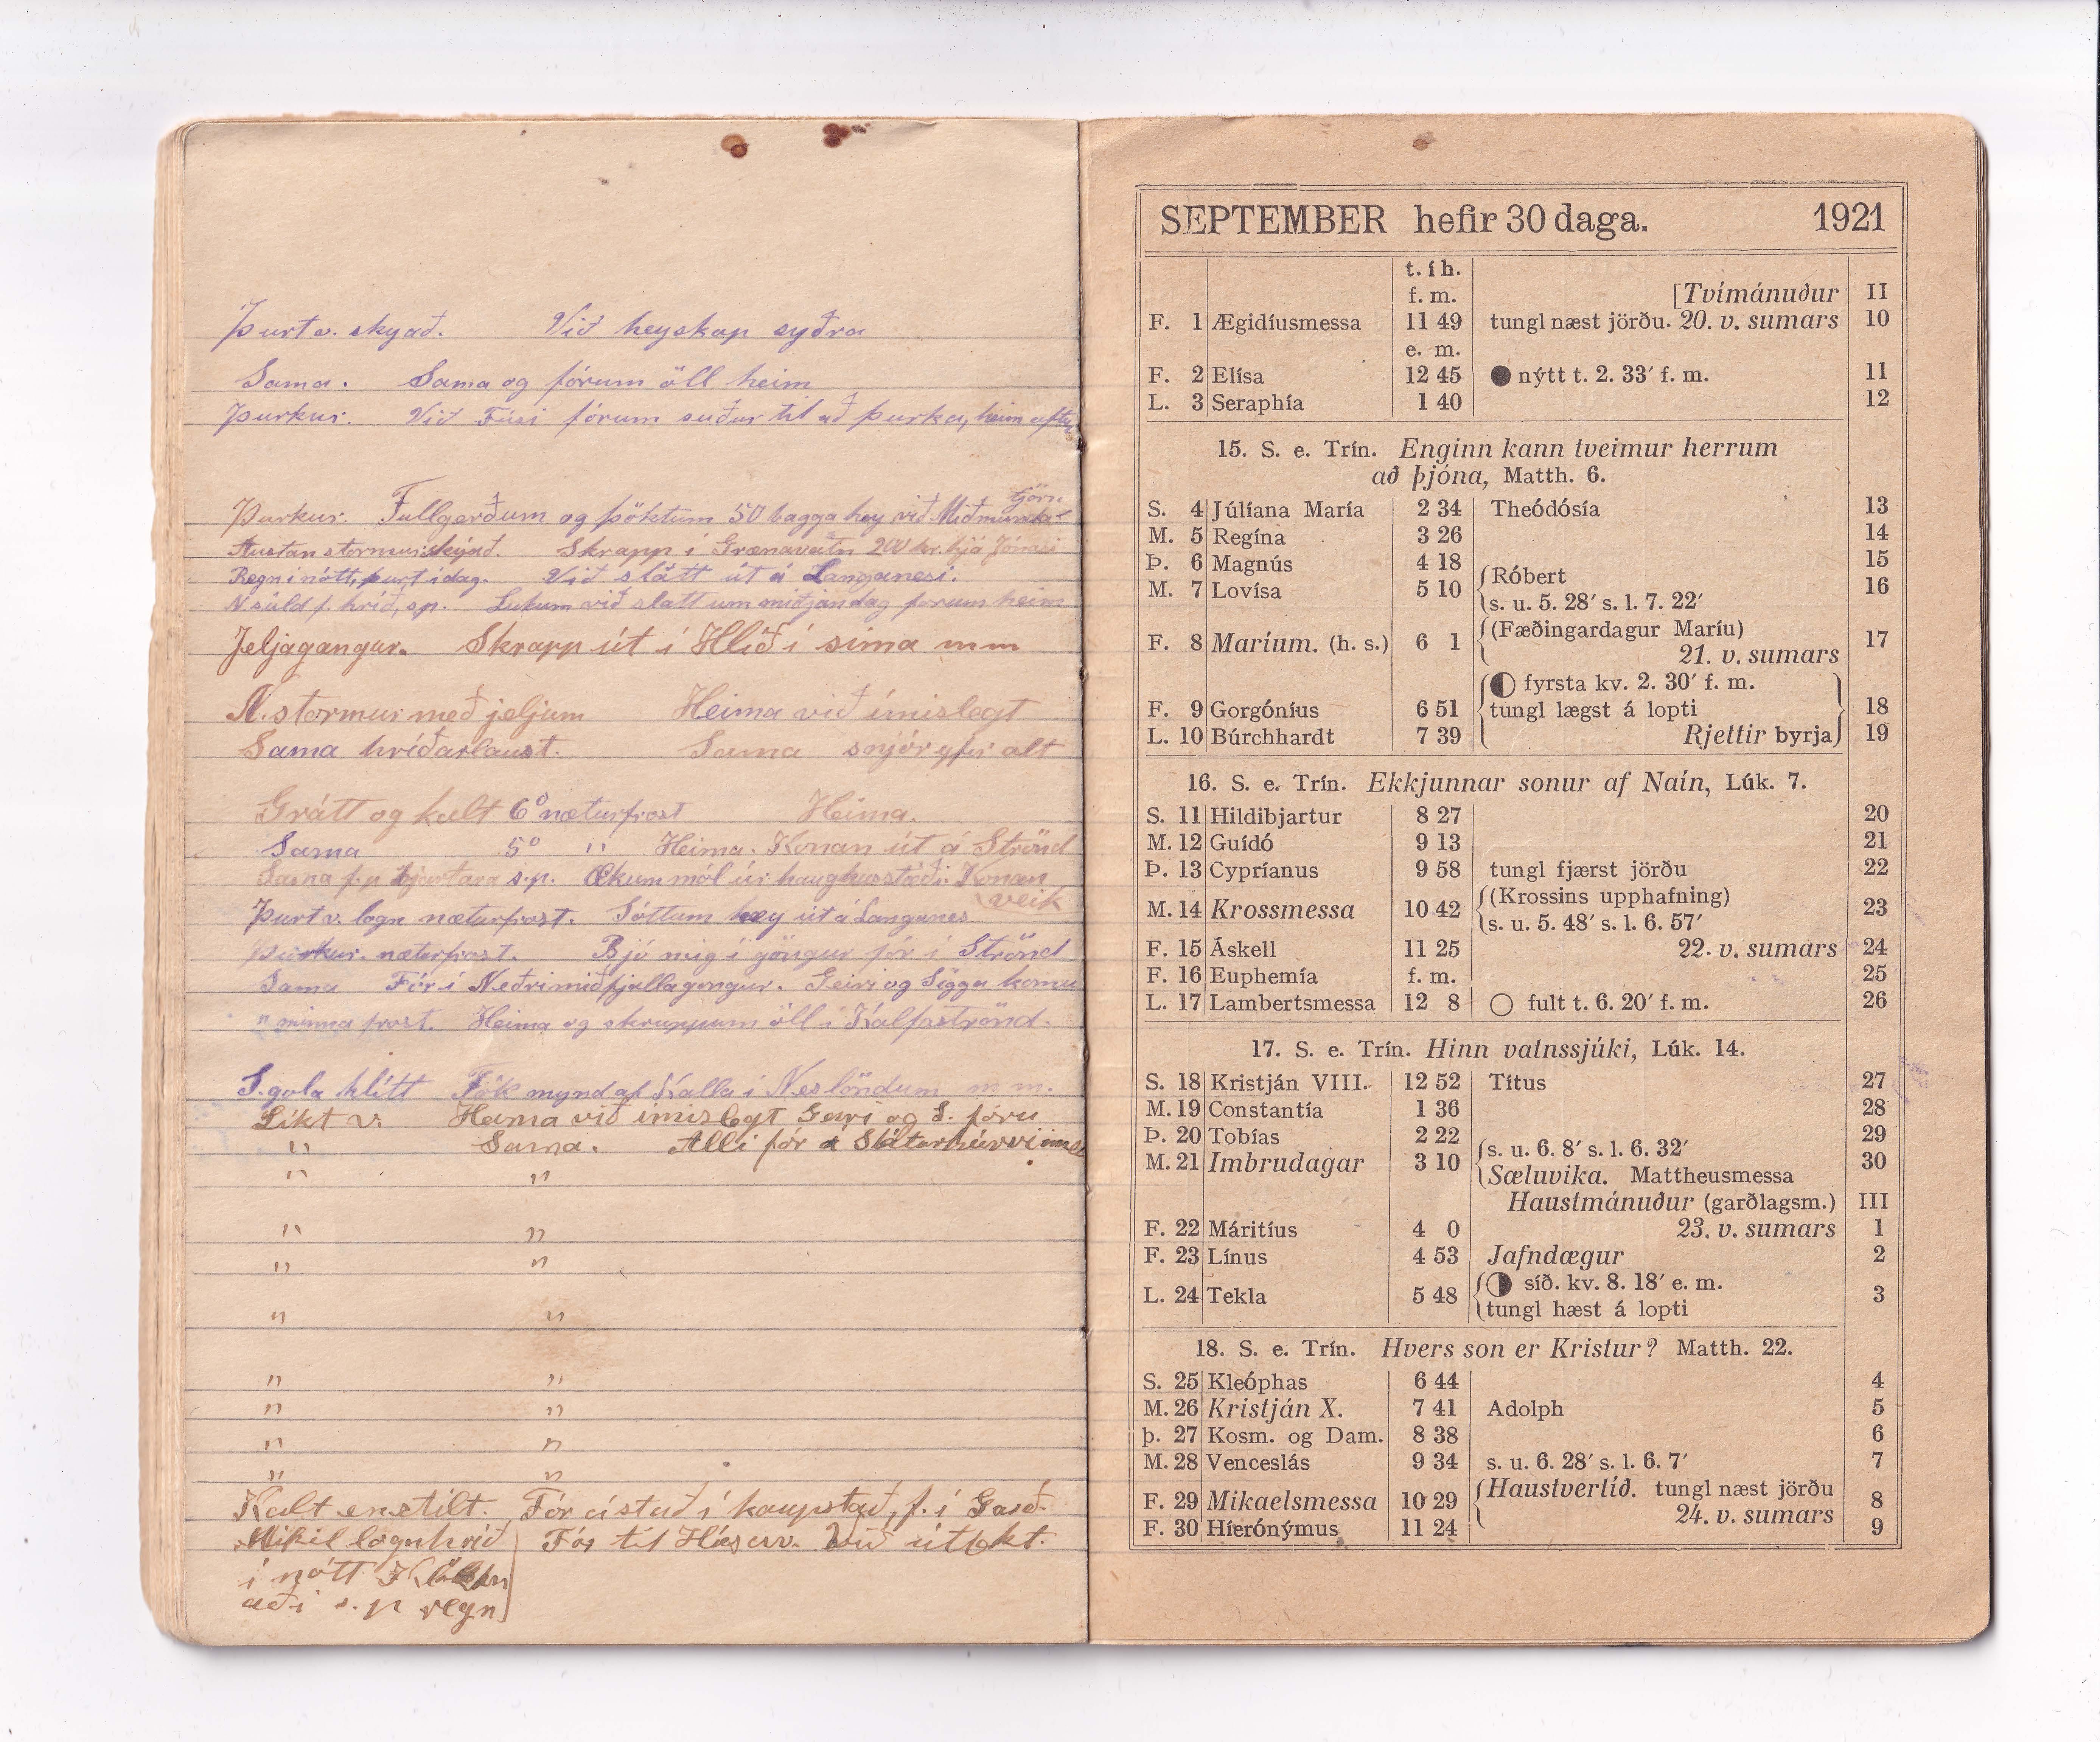 Þurt v. skyað. Við heyskap syðra
Sama. Sama og fórum öll heim
Þurkur. Við Fúsi fórum suður til að þurka, heim aftur
tjörn
Þurkur. Fullgerðum og þöktum 50 bagga hey við Miðmunda-
Austan stormur skýað. Skrapp í Grænavatn 200 kr. hjá Jónasi
Regn í nótt, þurt í dag. Við slátt út á Langanesi.
N súld f. hríð, s.p. Lukum við slátt um miðjan dag forum heim
Jeljagangur. Skrapp út í Hlíð í síma m m
N. stormur með jeljum Heima við ímislegt
Sama hríðarlaust. Sama snjór yfir alt
Grátt og kalt 6° næturfrost Heima.
Sama 5° " Heima. Konan út á Strönd
Sama f.p. bjartara s.p. Ókum möl úr haughússtæði. Konan
veik
Þurt v. logn næturfrost. Sóttum hey út á Langanes
Þurkur. næturfrost. Bjó mig í göngur fór í Strönd
Sama Fór í Neðrimiðfjallagöngur. Geiri og Sigga komu
" minna frost. Heima og skruppum öll í Kálfaströnd.
S. gola hlítt Tók mynd af Kalla í Neslöndum m m.
Líkt v. Heima við ímislegt Geiri og S. fóru
" Sama. Alli fór á
" "
" "
" "
" "
" "
" "
" "
" "
Kalt en stilt. Fór af stað í kaupstað, f. í Garð.
Mikil lognhríð Fór til Húsav. útekt.
í nótt
aði s.p regn
SEPTEMBER hefir 30 daga. 1921
t. í h.
f. m. [Tvímánuður II
F. 1 Ægidíusmessa 11 49 tungl næst jörðu. 20. v. sumars 10
e. m.
F. 2 Elísa 12 45 ● nýtt t. 2. 33′ f. m. 11
L. 3 Seraphía 1 40 12
15. S. e. Trín. Enginn kann tveimur herrum
að þjóna, Matth. 6.
S. 4 Júlíana María 2 34 Theódósía 13
M. 5 Regína 3 26 14
Þ. 6 Magnús 4 18 15
M. 7 Lovísa 5 10 {Róbert 16
s. u. 5. 28′ s. l. 7. 22′
F. 8 Maríum. (h. s.) 6 1 {(Fæðingardagur Maríu) 17
21. v. sumars
◐ fyrsta kv. 2. 30′ f. m.
F. 9 Gorgóníus 6 51 tungl lægst á lopti 18
L. 10 Búrchhardt 7 39 Rjettir byrja} 19
16. S. e. Trín. Ekkjunnar sonur af Naín, Lúk. 7.
S. 11 Hildibjartur 8 27 20
M. 12 Guídó 9 13 21
Þ. 13 Cypríanus 9 58 tungl fjærst jörðu 22
M. 14 Krossmessa 10 42 {(Krossins upphafning) 23
s. u. 5. 48′ s. l. 6. 57′
F. 15 Áskell 11 25 22. v. sumars 24
F. 16 Euphemía f. m. 25
L. 17 Lambertsmessa 12 8 ○ fult t. 6. 20′ f. m. 26
17. S. e. Trín. Hinn vatnssjúki, Lúk. 14.
S. 18 Kristján VIII. 12 52 Títus 27
M. 19 Constantía 1 36 28
Þ. 20 Tobías 2 22 29
M. 21 Imbrudagar 3 10 {s. u. 6. 8′ s. l. 6. 32′ 30
Sæluvika. Mattheusmessa
Haustmánuður (garðlagsm.) III
F. 22 Máritíus 4 0 23. v. sumars 1
F. 23 Línus 4 53 Jafndægur 2
L. 24 Tekla 5 48 {◑ síð. kv. 8. 18′ e. m. 3
tungl hæst á lopti
18. S. e. Trín. Hvers son er Kristur? Matth. 22.
S. 25 Kleóphas 6 44 4
M. 26 Kristján X. 7 41 Adolph 5
þ. 27 Kosm. og Dam. 8 38 6
M. 28 Venceslás 9 34 s. u. 6. 28′ s. l. 6. 7′ 7
F. 29 Mikaelsmessa 10 29 {Haustvertíð. tungl næst jörðu 8
24. v. sumars
F. 30 Híerónýmus 11 24 9